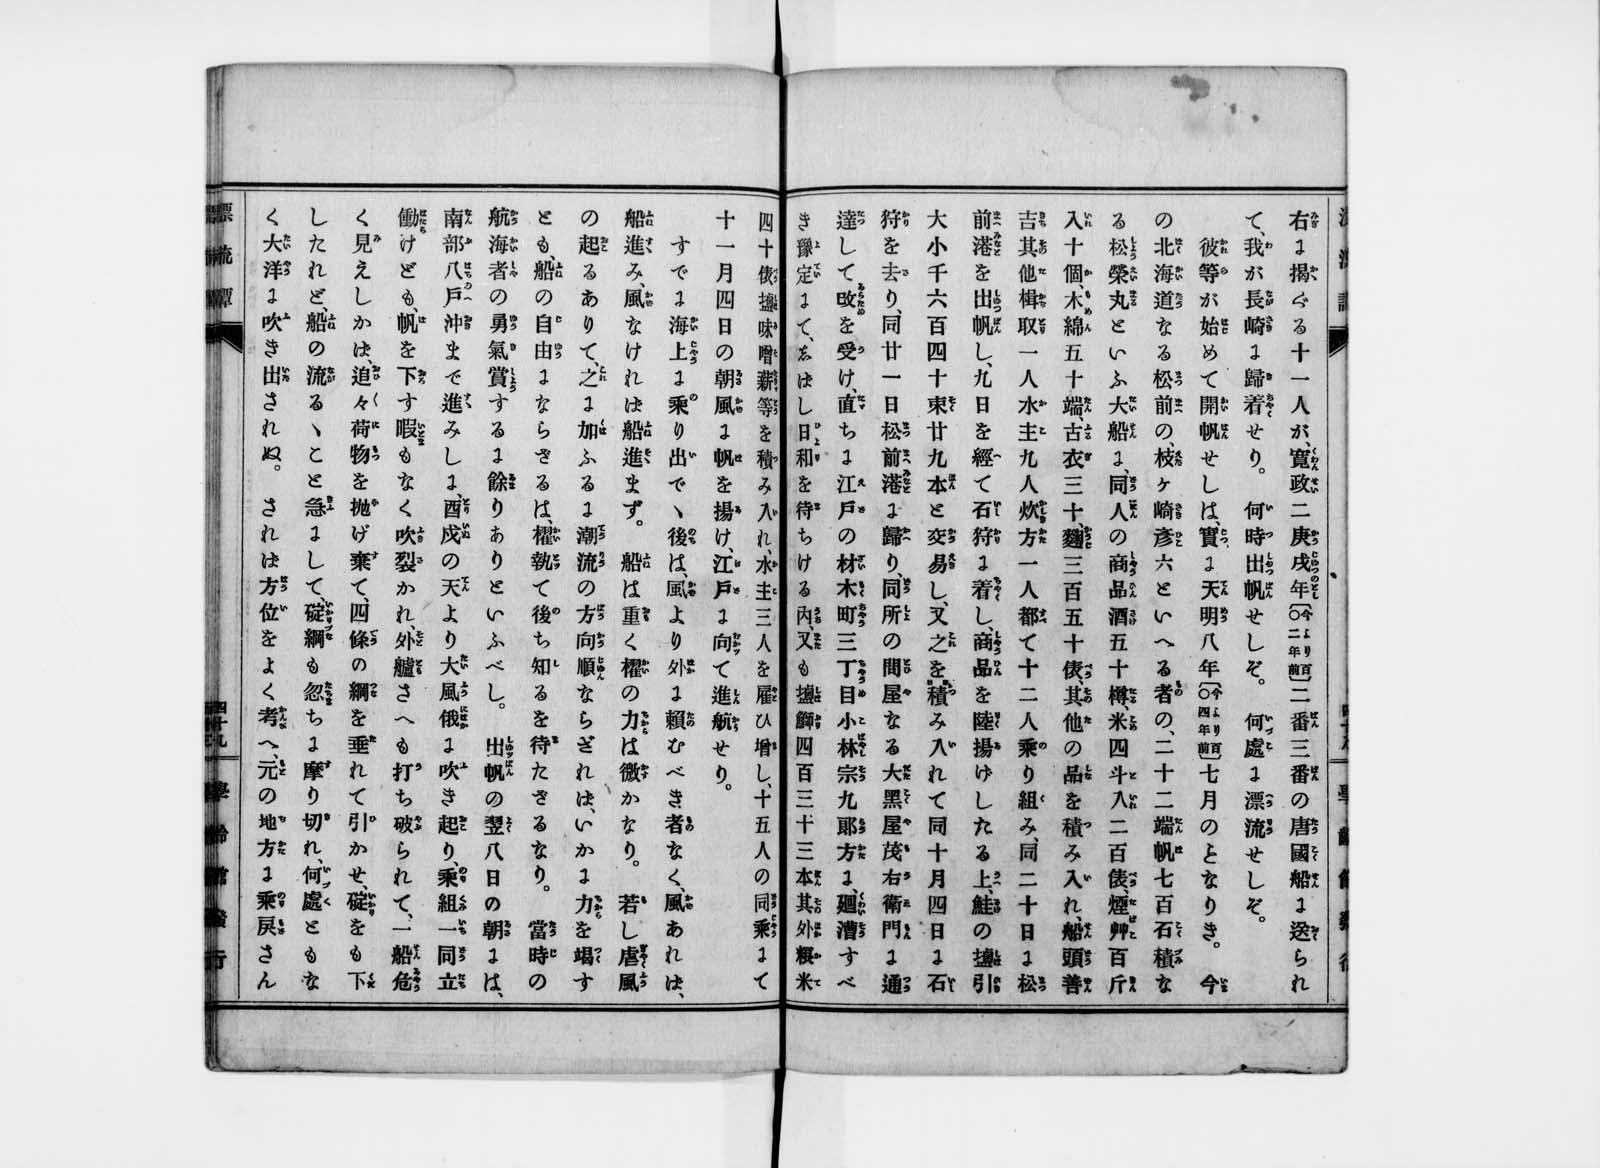 右に揭ぐる十一人が、寬政二庚戌年〔今より百〇二年前〕二番三番の唐國船に送られ
て、我が長崎に歸着せり。何時出帆せしぞ。何處に漂流せしぞ。
彼等が始めて開帆せしは、實に天明八年〔今より百〇四年前〕七月のことなりき。今
の北海道なる松前の、枝ヶ崎彥六といへる者の、二十二端帆七百石積な
る松榮丸といふ大船に、同人の商品酒五十樽、米四斗入二百俵、煙艸百斤
入十個、木綿五十端、古衣三十、麹三百五十俵、其他の品を積み入れ、船頭善
吉其他楫取一人水主九人炊方一人都て十二人乘り組み、同二十日に松
前港を出帆し、九日を經て石狩に着し、商品を陸揚げしたる上、鮭の鹽引
大小千六百四十束廿九本と交易し、又之を積み入れて同十月四日に石
狩を去り、同廿一日松前港に歸り、同所の問屋なる大黑屋茂右衛門に通
達して改を受け、直ちに江戸の材木町三丁目小林宗九郎方に、廻漕すべ
き豫定にて、志ばし日和を待ちける內、又も鹽鰤四百三十三本其外糧米
四十俵鹽味噌薪等を積み入れ、水主三人を雇ひ增し、十五人の同乘にて
十一月四日の朝風に帆を揚げ、江戸に向て進航せり。
すでに海上に乘り出でゝ後は、風より外に賴むべき者なく、風あれは、
船進み、風なけれは船進まず。船は重く櫂の力は微かなり。若し虐風
の起るありて、之に加ふるに潮流の方向順ならざれは、いかに力を竭す
とも、船の自由にならざるは、櫂執て後ち知るを待たざるなり。當時の
航海者の勇氣賞するに餘りありといふべし。出帆の翌八日の朝には、
南部八戸沖まで進みしに、酉戍の天より大風俄に吹き起り、乘組一同立
働けども、帆を下す暇もなく吹裂かれ、外艫さへも打ち破られて、一船危
く見えしかは、追々荷物を抛げ棄て、四條の綱を垂れて引かせ、碇をも下
したれど、船の流るゝこと急にして、碇綱も忽ちに摩り切れ、何處ともな
く大洋に吹き出されぬ。されは方位をよく考へ、元の地方に乘戾さん
漂流譚
四十九
學齡館發行